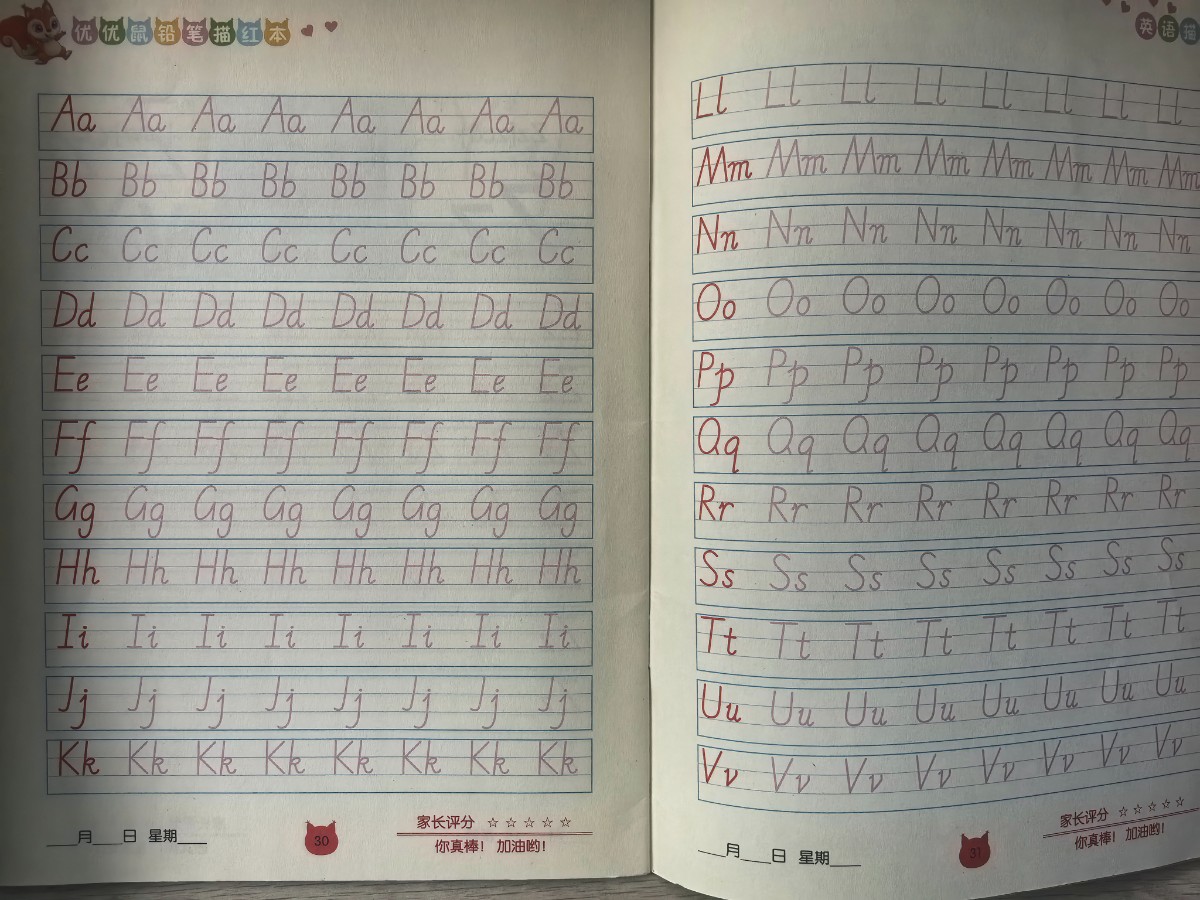 优优鼠铅笔描红本
Aa Aa Aa Aa Aa Aa Aa Aa
Bb Bb Bb Bb Bb Bb Bb Bb
Cc Cc Cc Cc Cc Cc Cc Cc
Dd Dd Dd Dd Dd Dd Dd Dd
Ee Ee Ee Ee Ee Ee Ee Ee
Ff Ff Ff Ff Ff Ff Ff Ff
Gg Gg Gg Gg Gg Gg Gg Gg
Hh Hh Hh Hh Hh Hh Hh Hh
Ii Ii Ii Ii Ii Ii Ii Ii
Jj Jj Jj Jj Jj Jj Jj Jj
Kk Kk Kk Kk Kk Kk Kk Kk
___月___日 星期___
30
家长评分 ☆☆☆☆☆
你真棒！加油哟！
英语描
Ll Ll Ll Ll Ll Ll Ll Ll
Mm Mm Mm Mm Mm Mm Mm Mm
Nn Nn Nn Nn Nn Nn Nn Nn
Oo Oo Oo Oo Oo Oo Oo Oo
Pp Pp Pp Pp Pp Pp Pp Pp
Qq Qq Qq Qq Qq Qq Qq Qq
Rr Rr Rr Rr Rr Rr Rr Rr
Ss Ss Ss Ss Ss Ss Ss Ss
Tt Tt Tt Tt Tt Tt Tt Tt
Uu Uu Uu Uu Uu Uu Uu Uu
Vv Vv Vv Vv Vv Vv Vv Vv
___月___日 星期___
31
家长评分 ☆☆☆☆☆
你真棒！加油哟！